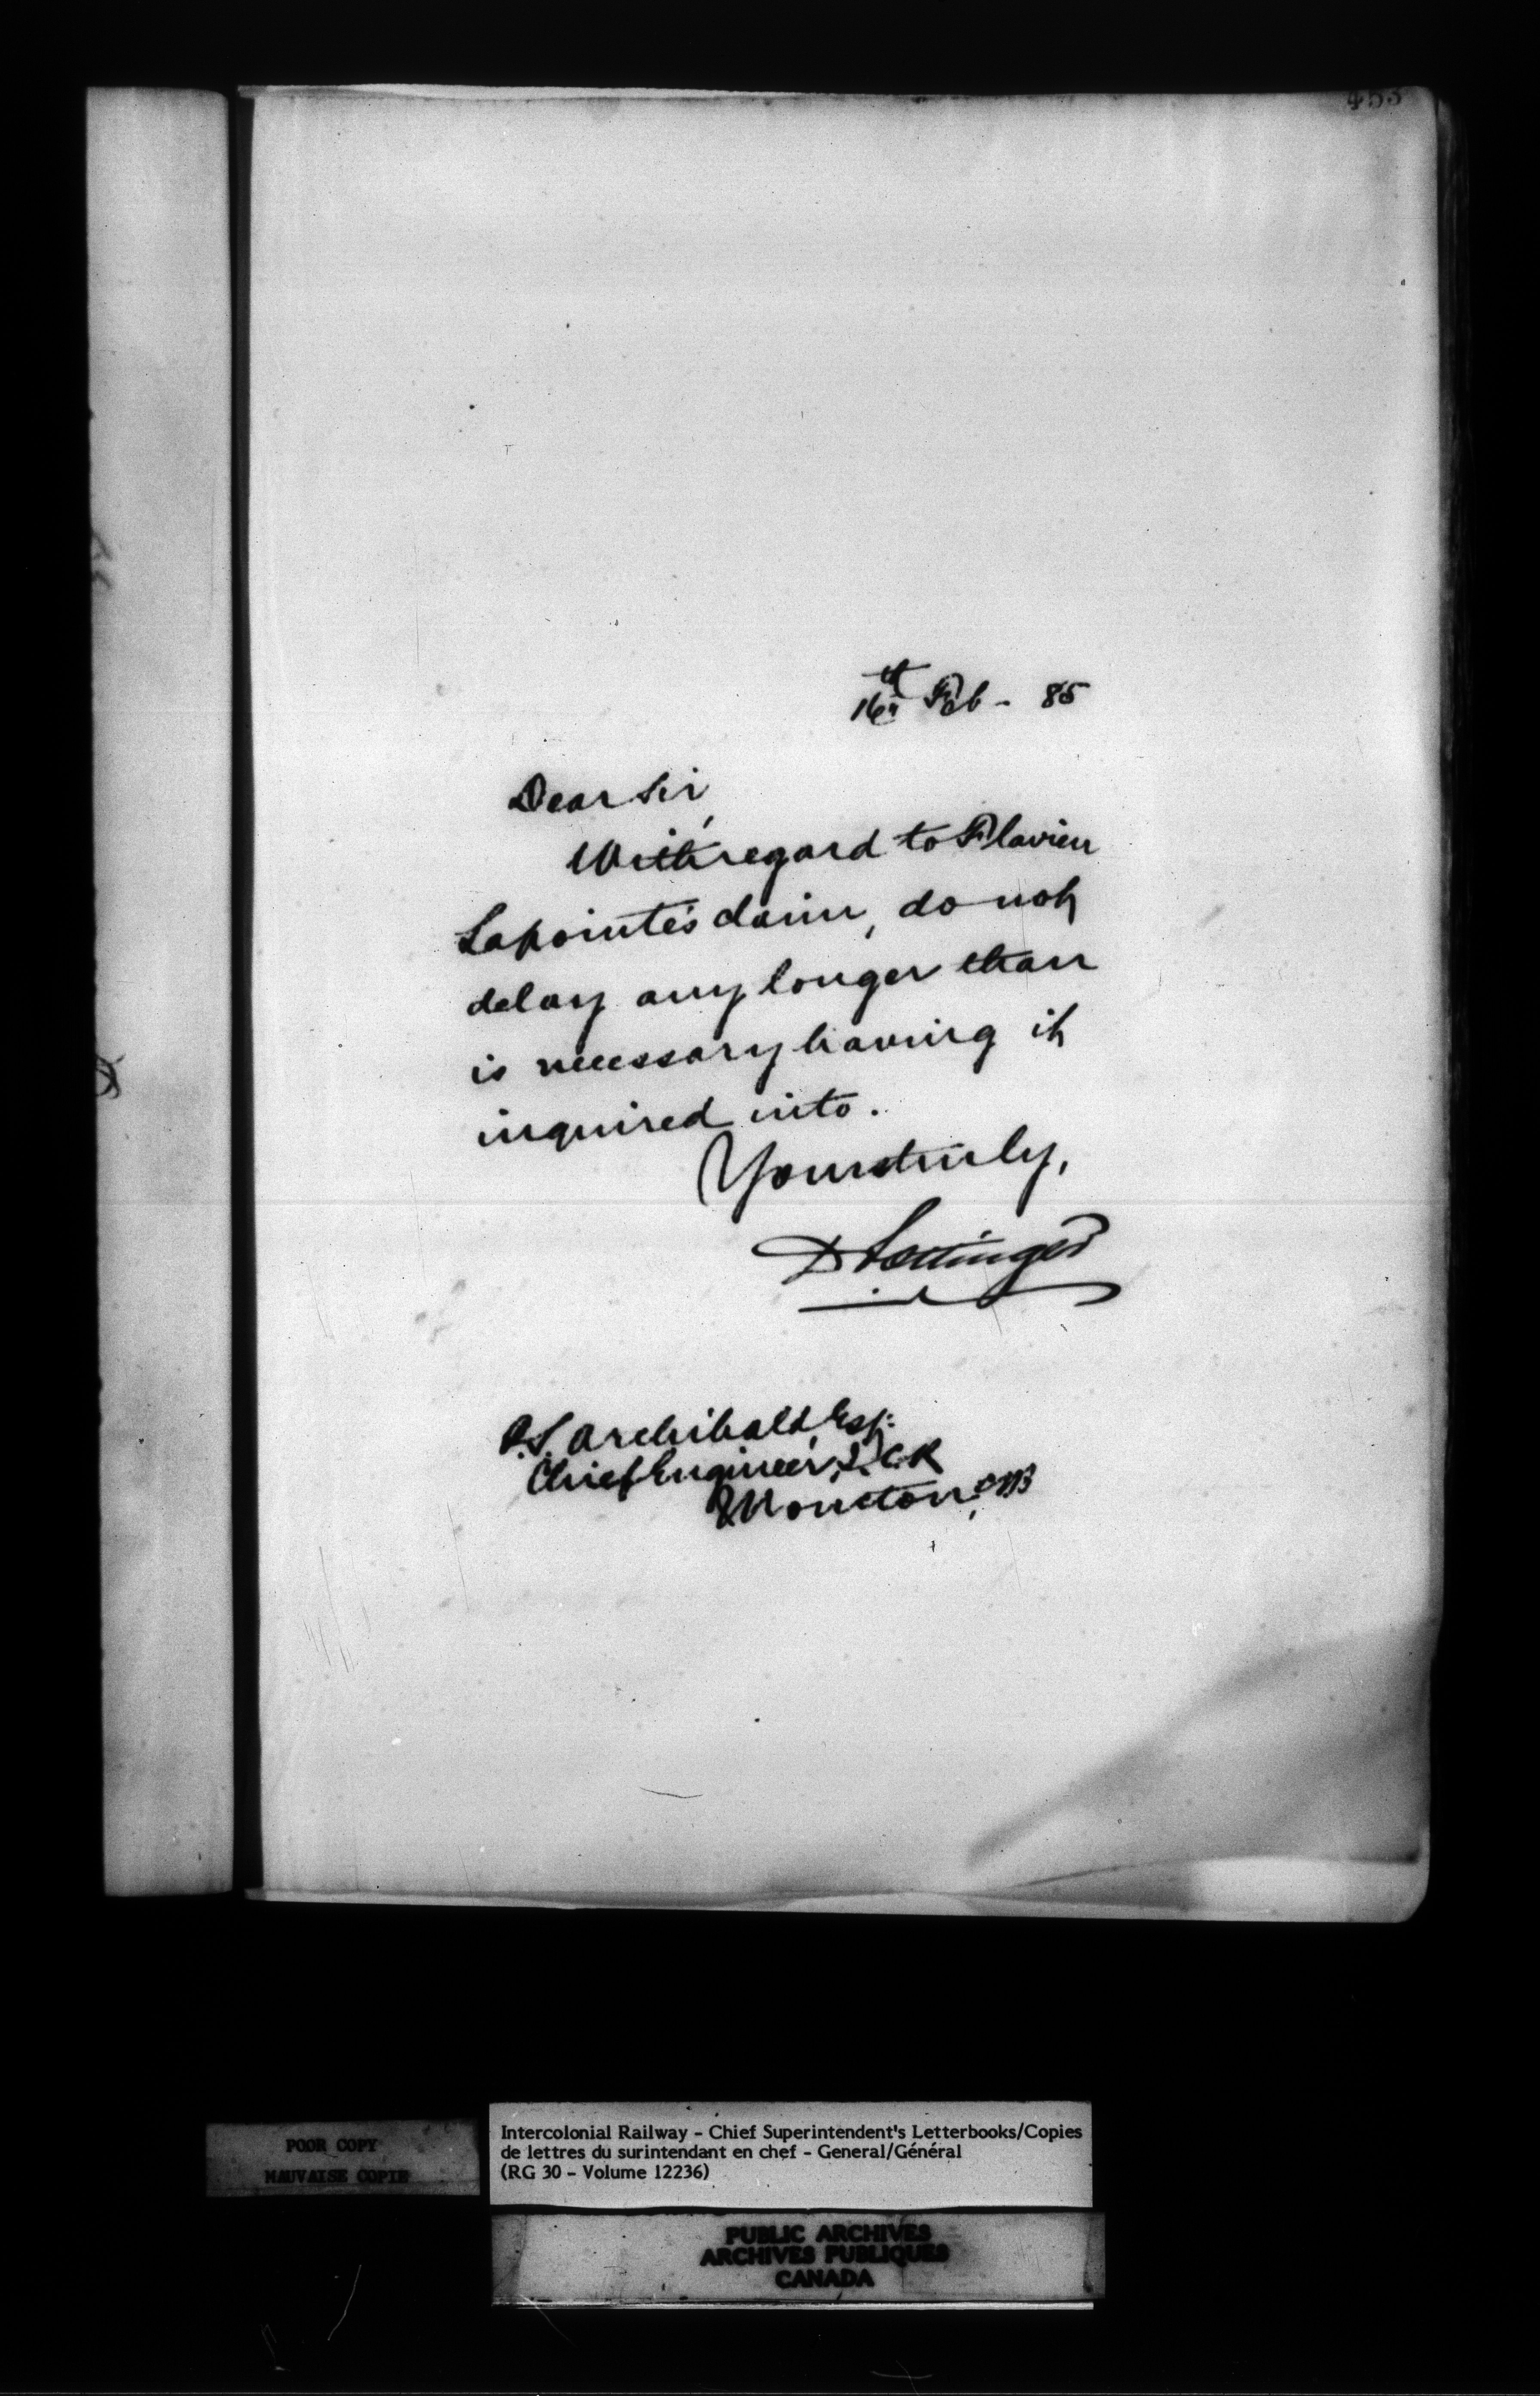 453
16th Feb - 85
Dear Sir,
With regard to Flavien
Lapointe's claim, do not
delay any longer than
is necessary having it
inquired into.
Yours truly,
D Pottinger
P.S. Archibald, Esq:
Chief Engineer, I.C.R
Moncton, NB
POOR COPY
MAUVAISE COPIE
Intercolonial Railway - Chief Superintendent's Letterbooks/Copies
de lettres du surintendant en chef - General/Général
(RG 30 - Volume 12236)
PUBLIC ARCHIVES
ARCHIVES PUBLIQUES
CANADA